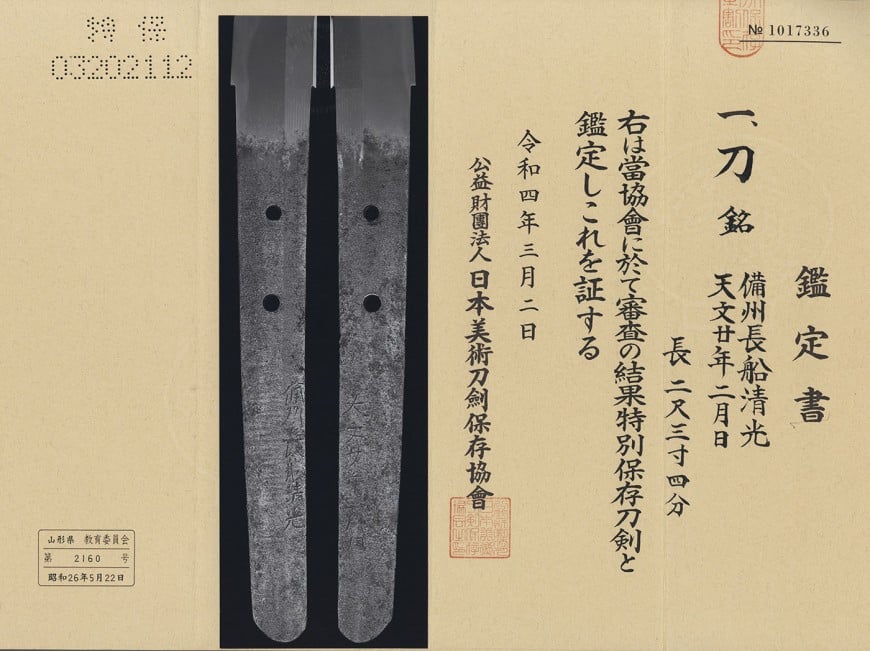 № 1017336
鑑定書
一、刀 銘
備州長船清光
天文廿年二月日
長 二尺三寸四分
右は當協會に於て審査の結果特別保存刀剣と
鑑定しこれを証する
令和四年三月二日
公益財團法人 日本美術刀劍保存協會
特保
03202112
備州長船清光
天文廿年二月日
山形県 教育委員会
第 2160 号
昭和26年5月22日